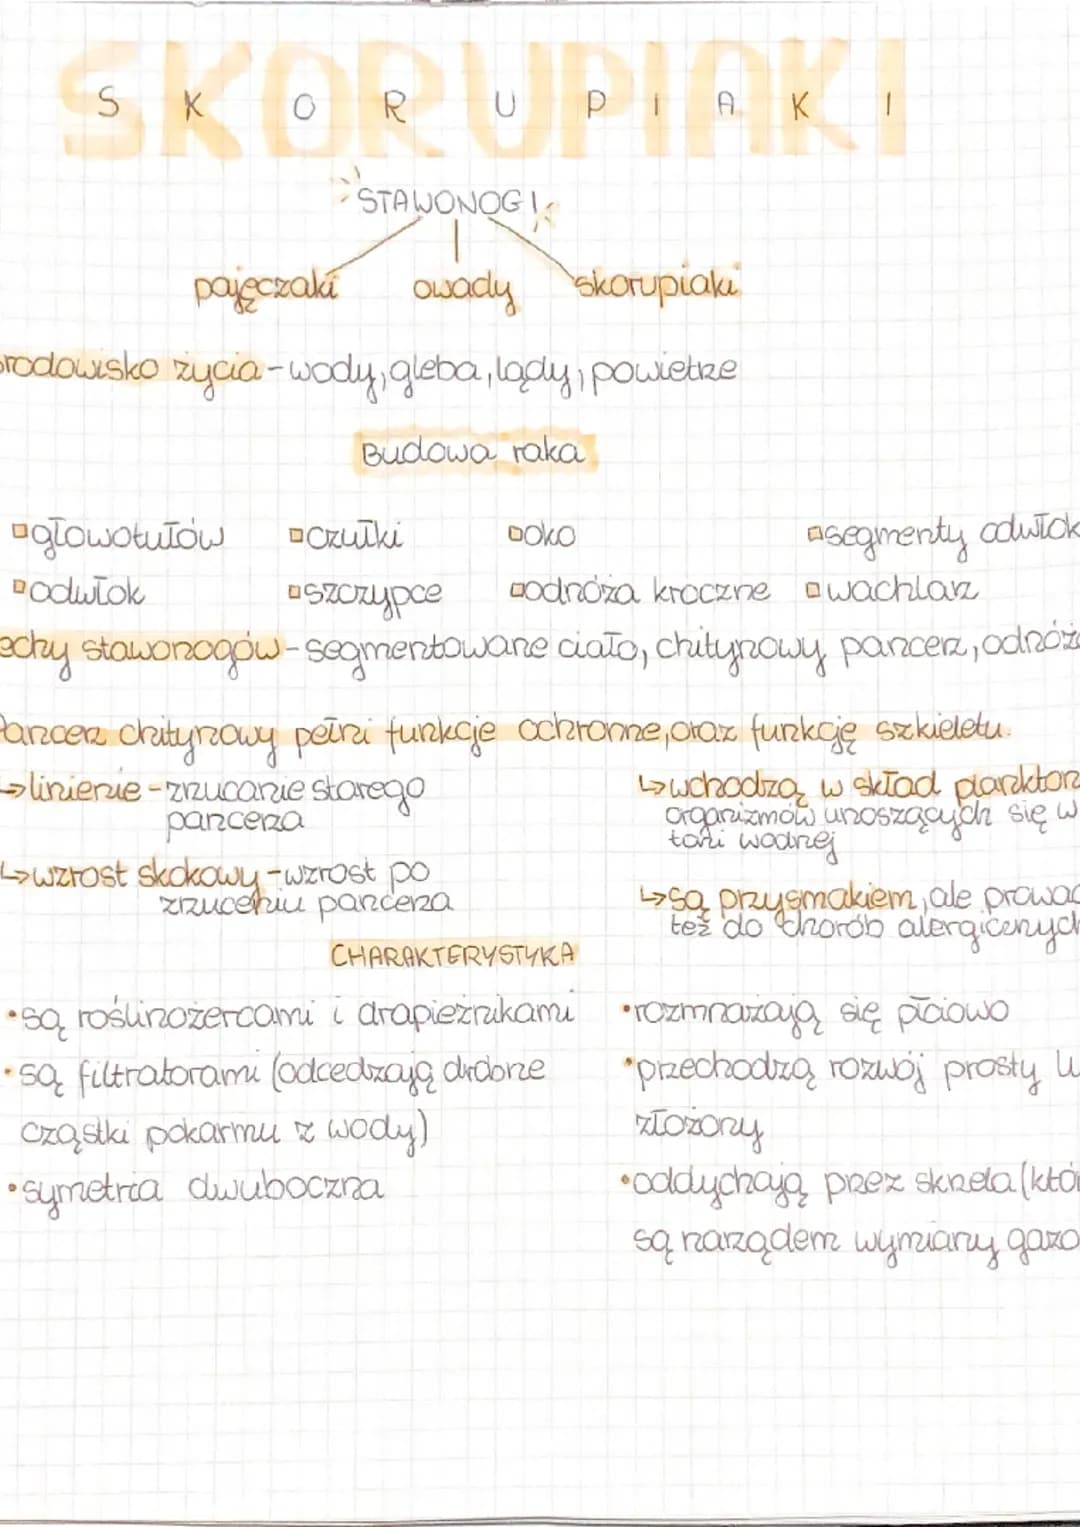 SKORUPIAKI
S K O R U P I A K I
STAWONOGI
pajęczaki owady skorupiaki
środowisko życia - wody, gleba, lądy, powietrze
Budowa raka
głowotułów czułki oko segmenty odwłok
odwłok szczypce odnóża kroczne wachlarz
echy stawonogów - segmentowane ciało, chitynowy pancerz, odnóż
Pancerz chitynowy pełni funkcje ochronne, oraz funkcję szkieletu.
↳ linienie - zrzucanie starego
pancerza
↳ wzrost skokowy - wzrost po
zrzuceniu pancerza
↳ wchodzą w skład plankton
organizmów unoszących się w
toni wodnej
↳ są przysmakiem, ale prowad
też do chorób alergicznych
CHARAKTERYSTYKA
• są roślinożercami i drapieżnikami
• są filtratorami (odcedzają drobne
cząstki pokarmu z wody)
• symetria dwuboczna
• rozmnażają się płciowo
• przechodzą rozwój prosty lu
złożony
• oddychają przez skrzela (któr
są narządem wymiany gazo